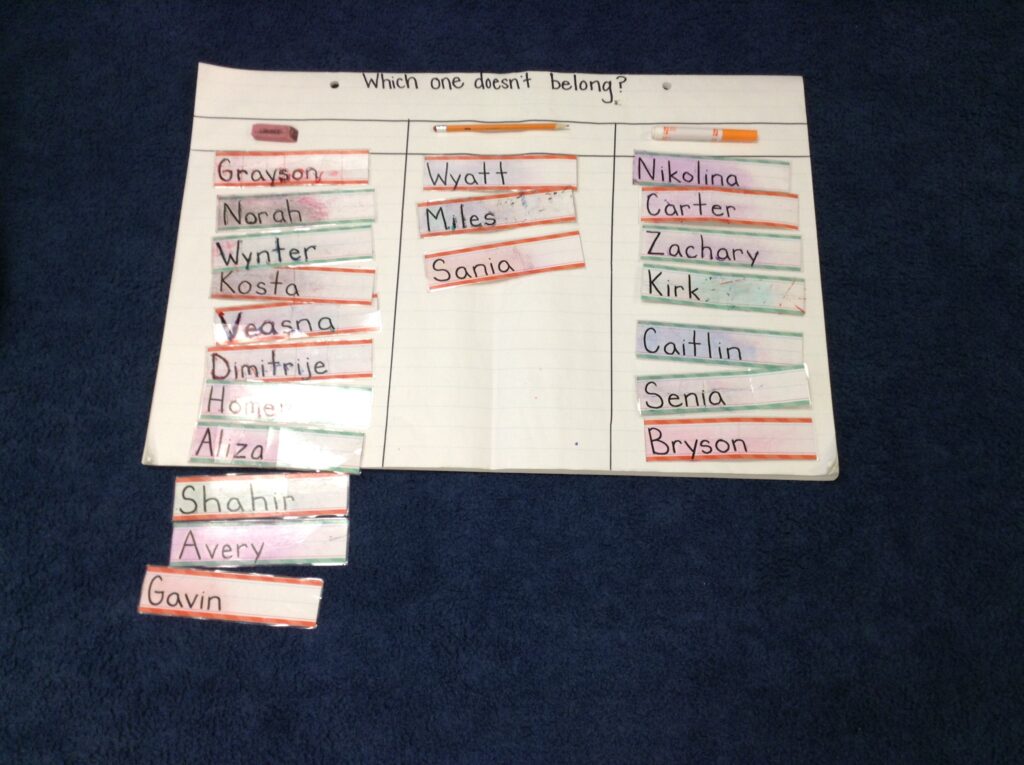 Which one doesn't belong?
Grayson
Norah
Wynter
Kosta
Veasna
Dimitrije
Homer
Aliza
Shahir
Avery
Gavin
Wyatt
Miles
Sania
Nikolina
Carter
Zachary
Kirk
Caitlin
Senia
Bryson